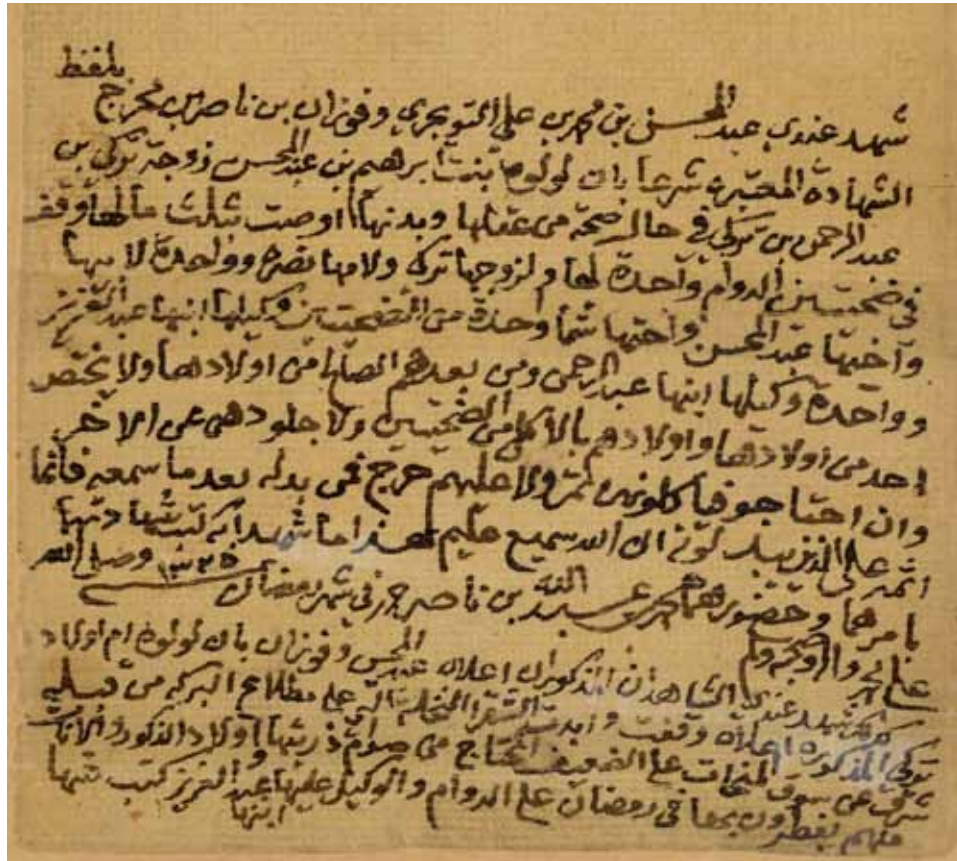 بلفظ
شهد عندي عبد المحسن بن محمد بن علي التويجري وفوزان بن ناصر بن محرج
الشهادة المعتبره شرعا بان لولوه بنت ابرهيم بن عبد المحسن زوجة تركي بن
عبد الرحمن بن تركي في حال صحة من عقلها وبدنها اوصت بثلث مالها وقف
في ضحيتين الدوام واحدة لها ولزوجها تركي ولامها وواحدة لابيها
واخيها عبد المحسن واختها شما وحدة من الضحيتين وكيلها ابنها عبد العزيز
وواحدة وكيلها ابنها عبد الرحمن ومن بعدهم الصالح من اولادها ولا يختص
احد من اولادها واولادهم بالاكل من الضحيتين ولا جلودهن عن الاخر
وان احتاجوفا كلونهن ولا عليهم حرج فمن بدله بعد ما سمعه فانما
اثمه على الذين يبدلونه ان الله سميع عليم هذا ما شهدا به كتب شهادتهما
بامرهما وحضورهما عبد الله بن ناصر في شهر رمضان وصلى الله
على محمد واله وصحبه وسلم
كذلك شهد عندي الشاهدان المذكوران اعلاه عبد المحسن وفوزان بان لولوه ام اولاد
تركي المذكوره اعلاه وقفت وابدت الشقرا النخلة التي على مطلاع البركه من قبله
شرق عن سوق على الضعيف المحتاج من صوام ذريتها اولاد الذكور والاناث
منهم يفطرون بها في رمضان على الدوام والوكيل عليها عبد العزيز كتب شهادتهما
ابنها